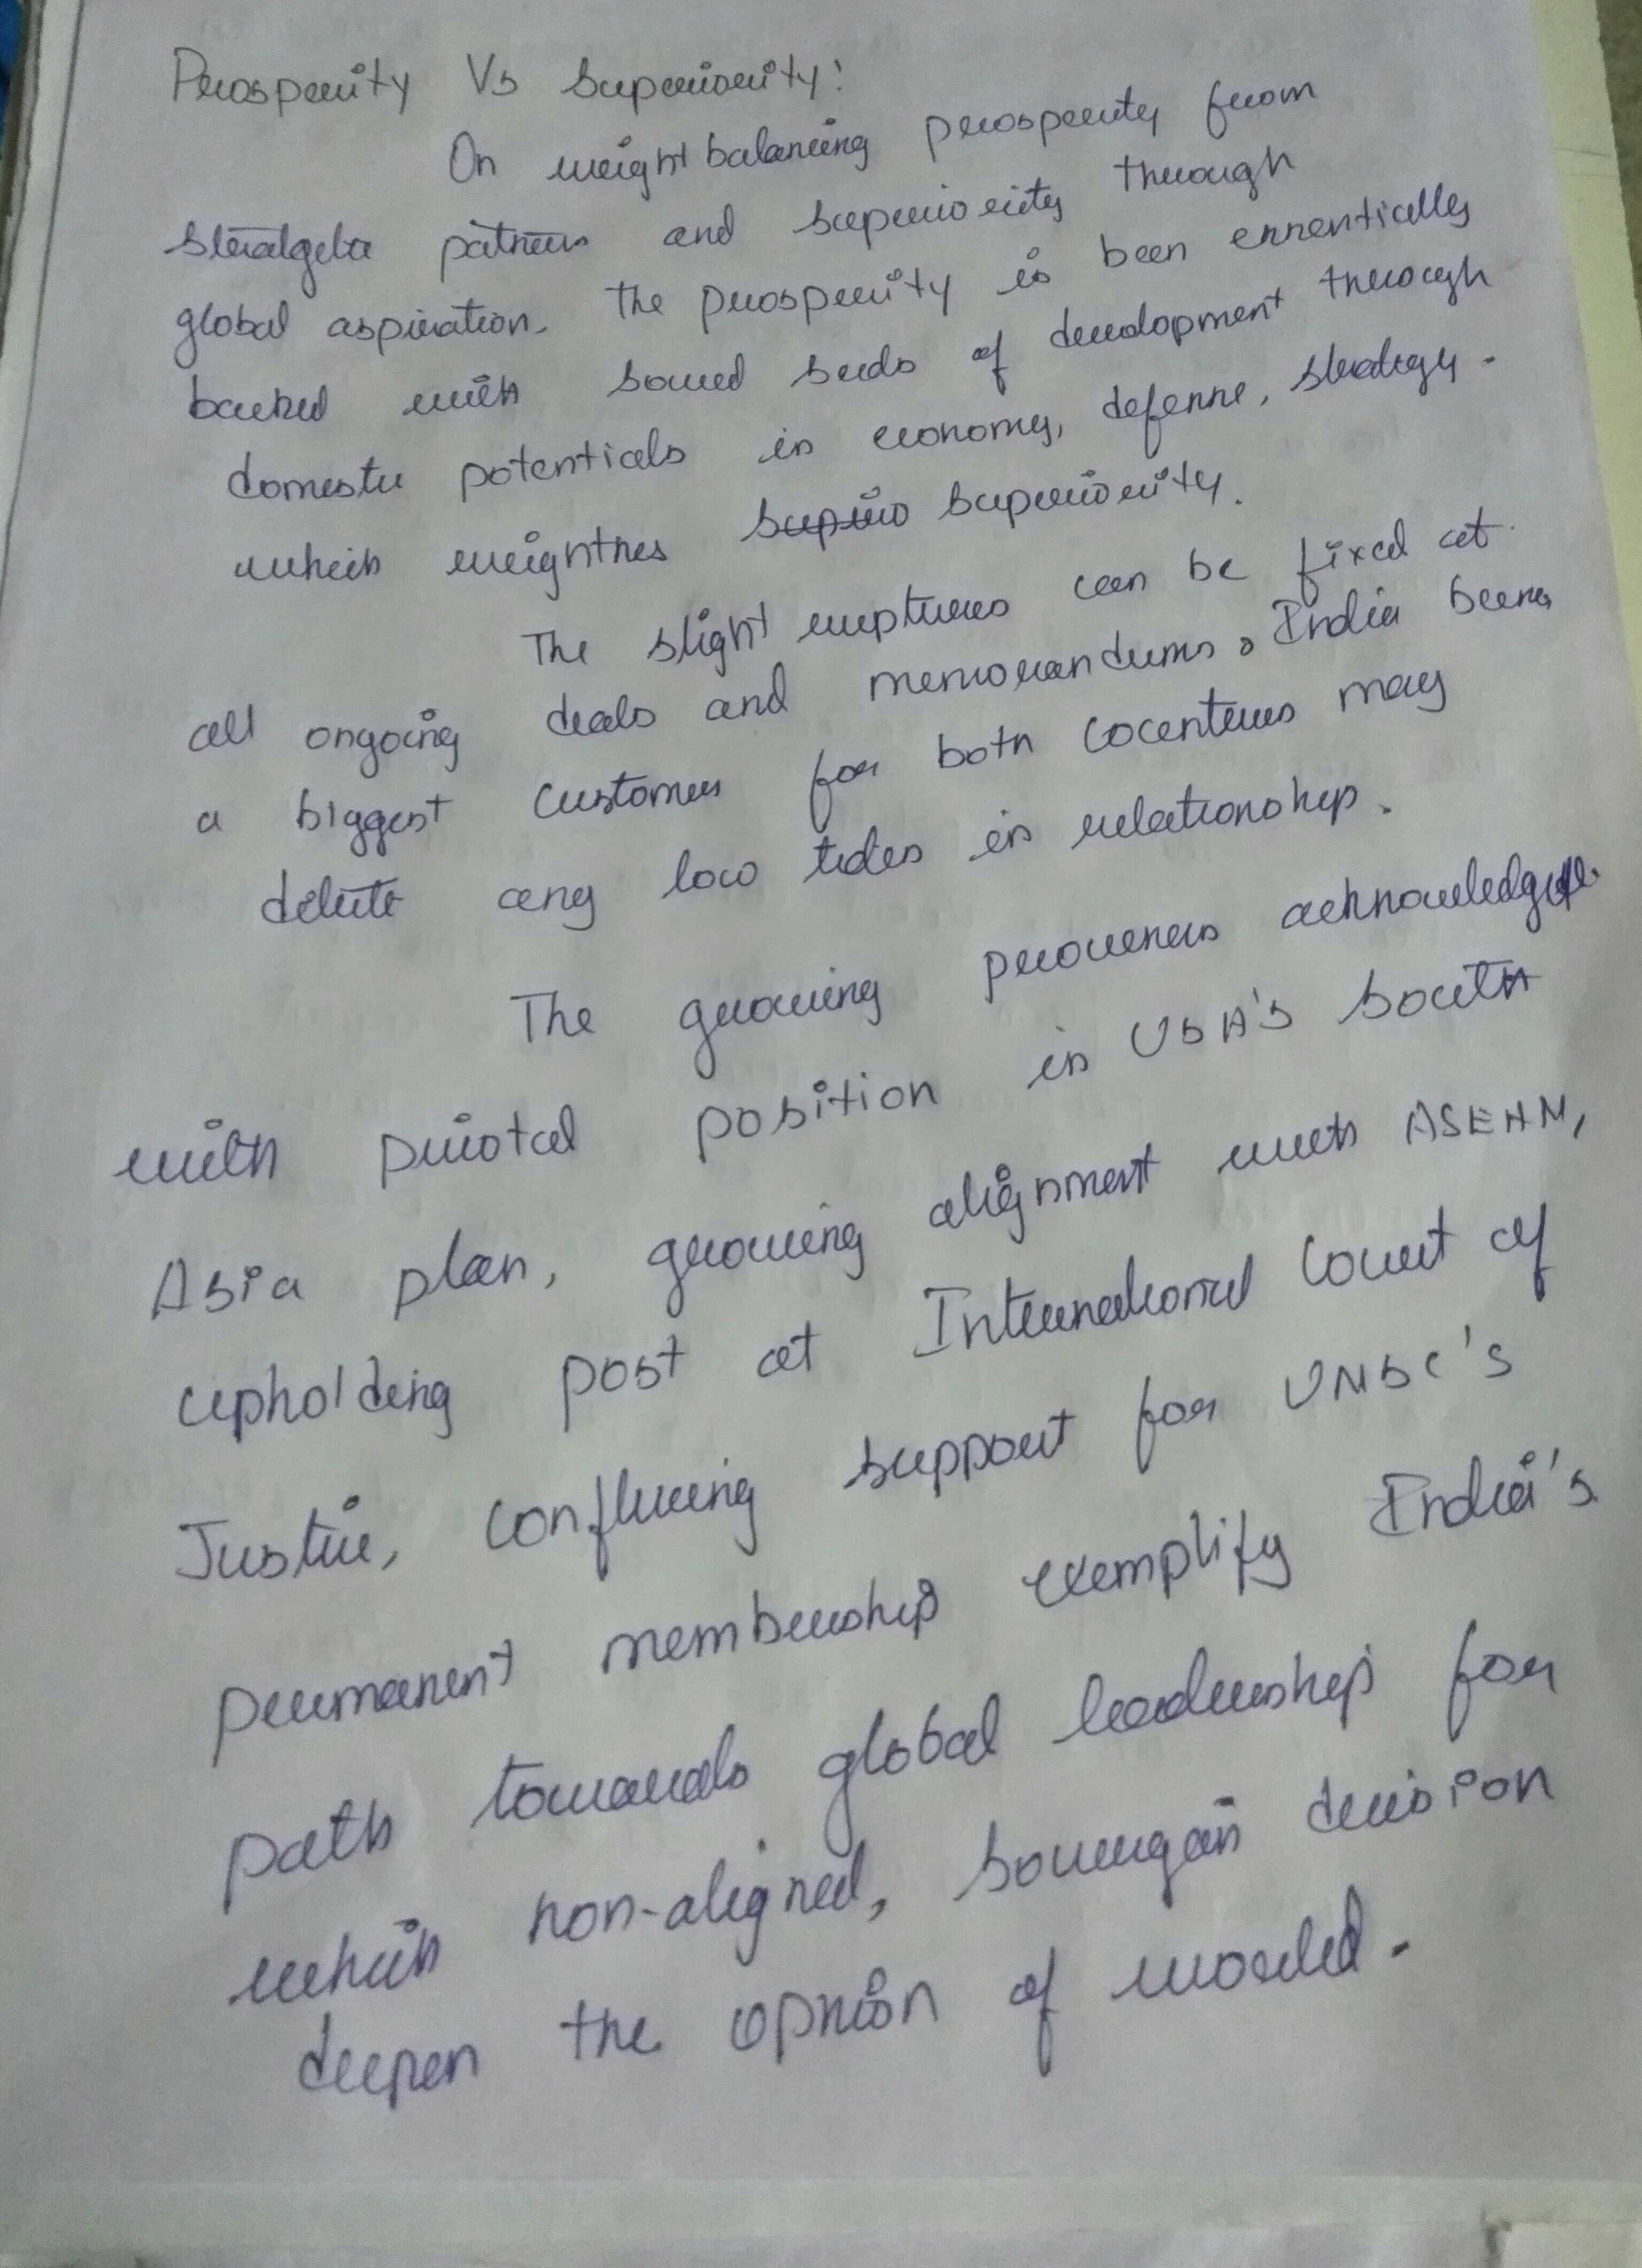 Prosperity Vs Superiority:
On weight balancing prosperity from
and superiority through
global aspiration. The prosperity is been essentially
backed with sowed seeds of development through
domestic potentials in economy, defense, strategy.
which weighthes supirio superiority.
The slight ruptures can be fixed at
all ongoing deals and memorandums. India being
a biggest customer for both countries may
delute any low tides in relationship.
The growing prowness acknowledge
with pivotal position in USA's South
Asia plan, growing alignment with ASEAN,
upholding post at International Court of
Justice, confluing support for UNSC's
permanent membership exemplify India's
path towards global leadership for
which non-aligned, soveregain decision
deepen the opnion of world.